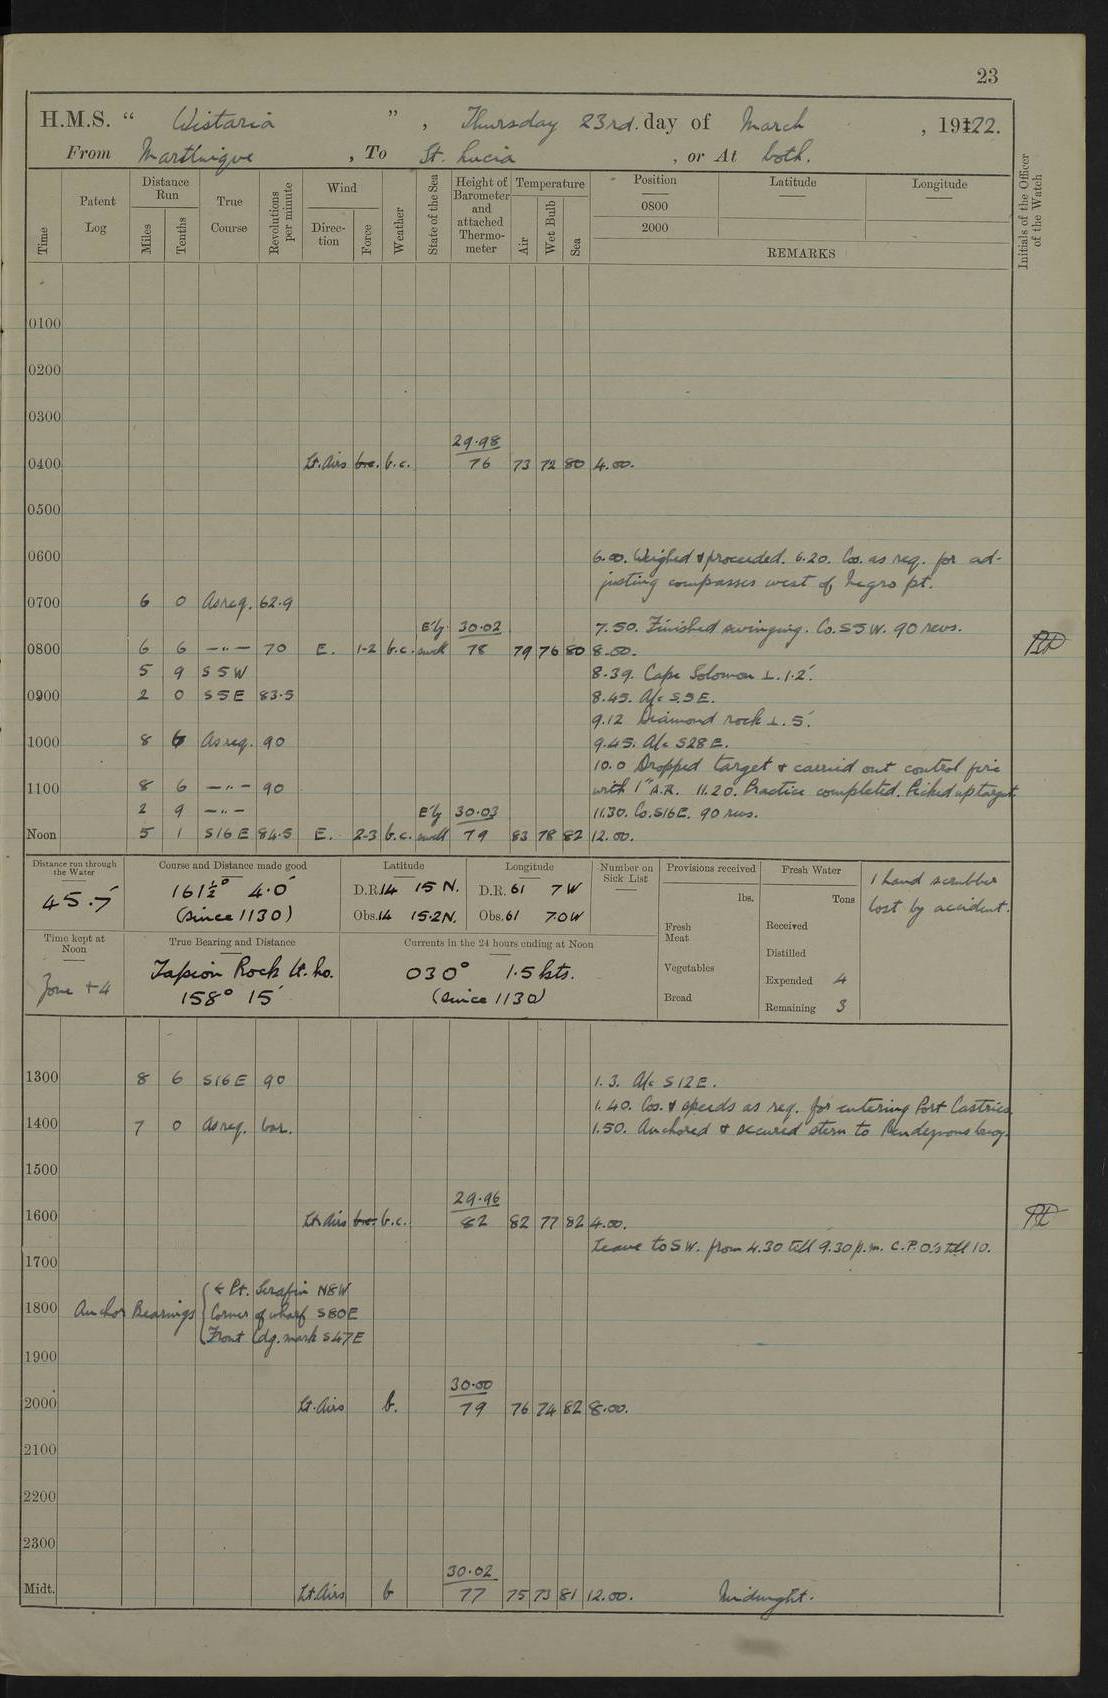 23
H.M.S. " Wistaria ", Thursday 23rd. day of March, 1922.
From Martinique, To St. Lucia, or At both.
Time
Patent Log
Distance Run
Miles
Tenths
True Course
Revolutions per minute
Wind
Direction
Force
Weather
State of the Sea
Height of Barometer and attached Thermometer
Temperature
Air
Wet Bulb
Sea
Position
0800
2000
Latitude
Longitude
REMARKS
Initials of the Officer of the Watch
0100
0200
0300
29.98
0400 Lt. Airs b.c. b.c. 76 73 72 80 4.00.
0500
0600 6.00. Weighed & proceeded. 6.20. Co. as req. for ad-
justing compasses west of Negro pt.
0700 6 0 As req. 62.9
E'ly 30.02 7.50. Finished swinging. Co. SSW. 90 revs.
0800 6 6 —"— 70 E. 1-2 b.c. swell 78 79 76 80 8.00.
5 9 SSW 8.39. Cape Solomon ⊥ 1.2'.
0900 2 0 SSE 83.5 8.45. A/c SSE.
9.12 Diamond rock ⊥ .5'.
1000 8 6 As req. 90 9.45. A/c S28E.
10.0 Dropped target & carried out control fire
1100 8 6 —"— 90 with 1" A.R. 11.20. Practice completed. Picked up target.
2 9 —"— E'ly 30.03 11.30. Co. S16E. 90 revs.
Noon 5 1 S16E 84.5 E. 2-3 b.c. swell 79 83 78 82 12.00.
Distance run through the Water
45.7'
Course and Distance made good
161½° 4.0'
(since 1130)
Latitude
D.R. 14 15 N.
Obs. 14 15.2 N.
Longitude
D.R. 61 7 W
Obs. 61 7.0 W
Number on Sick List
Provisions received
lbs.
Fresh Meat
Vegetables
Bread
Fresh Water
Tons
Received
Distilled
Expended 4
Remaining 3
1 hand scrubber
lost by accident.
Time kept at Noon
Zone +4
True Bearing and Distance
Tapion Rock Lt. ho.
158° 15'
Currents in the 24 hours ending at Noon
030° 1.5 kts.
(since 1130)
1300 8 6 S16E 90 1.3. A/c S12E.
1.40. Cos. & speeds as req. for entering Port Castries
1400 7 0 As req. var. 1.50. Anchored & secured stern to Rendezvous buoy.
1500
29.96
1600 Lt. Airs b.c. b.c. 82 82 77 82 4.00.
Leave to SW. from 4.30 till 9.30 p.m. C.P.O.'s till 10.
1700
← Pt. Serafin N8W
1800 Anchor Bearings Corner of wharf S80E
Front ldg. mark S47E
1900
30.00
2000 Lt. Airs b. 79 76 74 82 8.00.
2100
2200
2300
30.02
Midt. Lt. Airs b 77 75 73 81 12.00. Midnight.